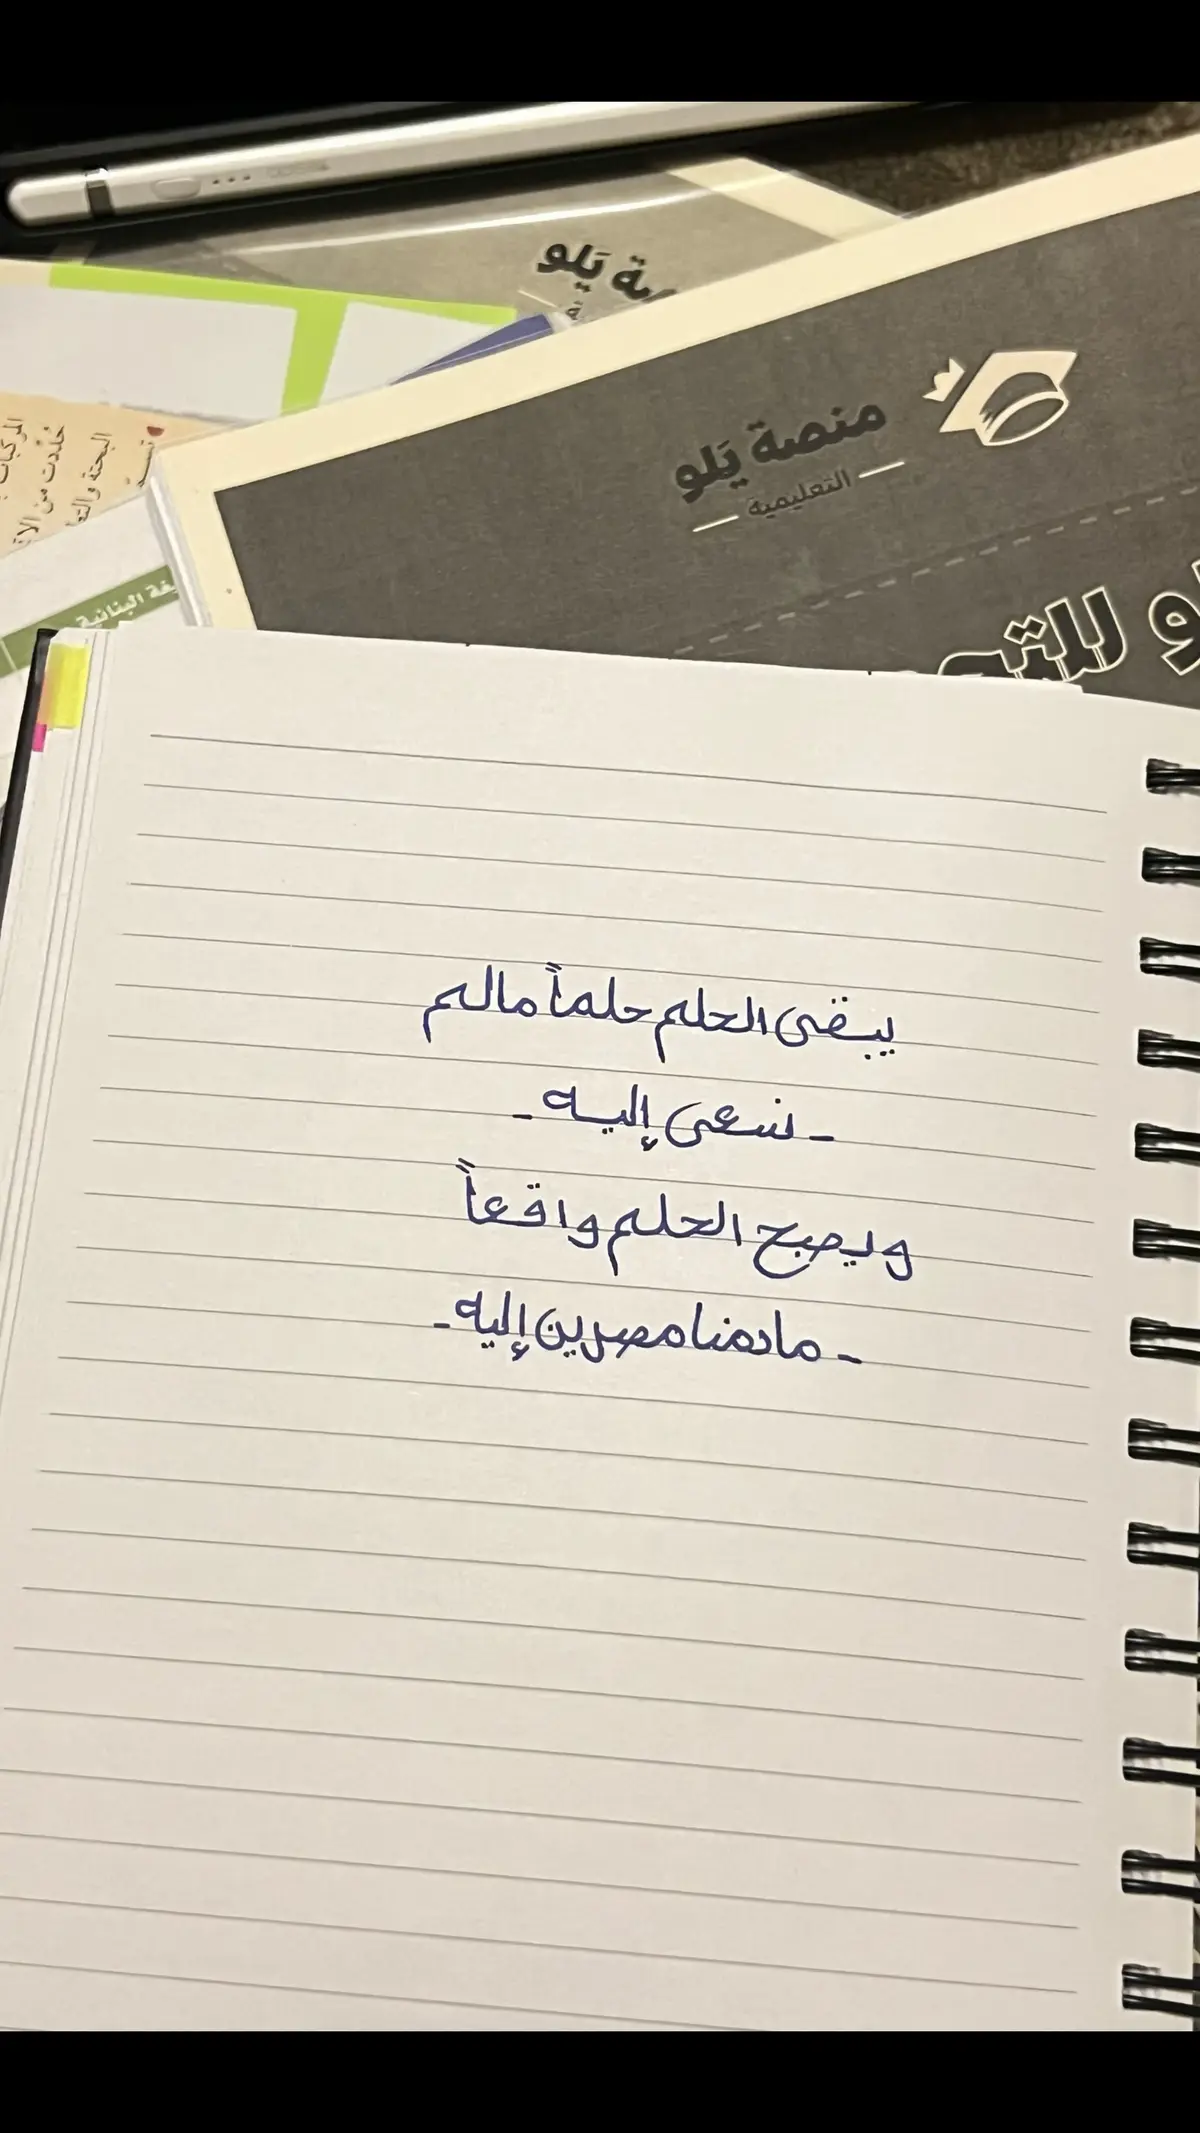 ـة يَلو
منصة يَلو
التعليمية
المركبات
حُدّدت من الا
البحتة والتعا
ـغة البنائية
يبقى الحلم حلماً مالم
- نسعى إليه -
ويصبح الحلم واقعاً
- مادمنا مصرين إليه -